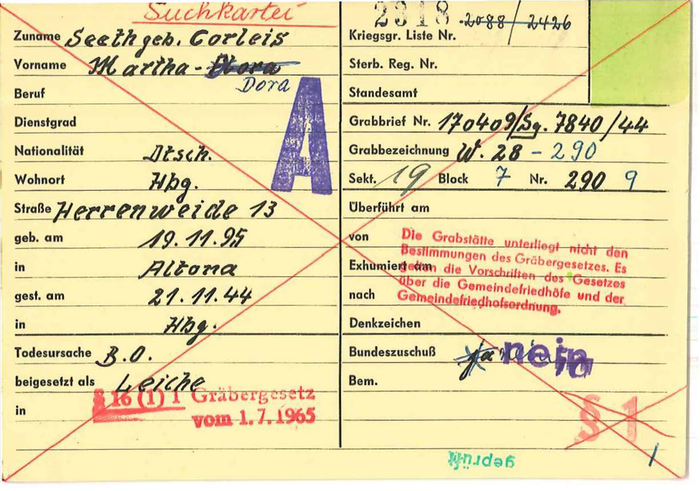 Suchkartei
Zuname Seeth geb. Corleis
Vorname Martha - Flora
Dora
Beruf
Dienstgrad
Nationalität Dtsch.
Wohnort Hbg.
Straße Herrenweide 13
geb. am 19.11.95
in Altona
gest. am 21.11.44
in Hbg.
Todesursache B.O.
beigesetzt als Leiche
in
§ 16 (1) 1 Gräbergesetz
vom 1.7.1965
A
2318 2088/2426
Kriegsgr. Liste Nr.
Sterb. Reg. Nr.
Standesamt
Grabbrief Nr. 170409/Sg. 7840/44
Grabbezeichnung W. 28 - 290
Sekt. 19 Block 7 Nr. 290 9
Überführt am
von
Exhumiert am
nach
Die Grabstätte unterliegt nicht den
Bestimmungen des Gräbergesetzes. Es
gelten die Vorschriften des Gesetzes
über die Gemeindefriedhöfe und der
Gemeindefriedhofsordnung.
Denkzeichen
Bundeszuschuß nein
Bem.
§ 1
geprüft
1